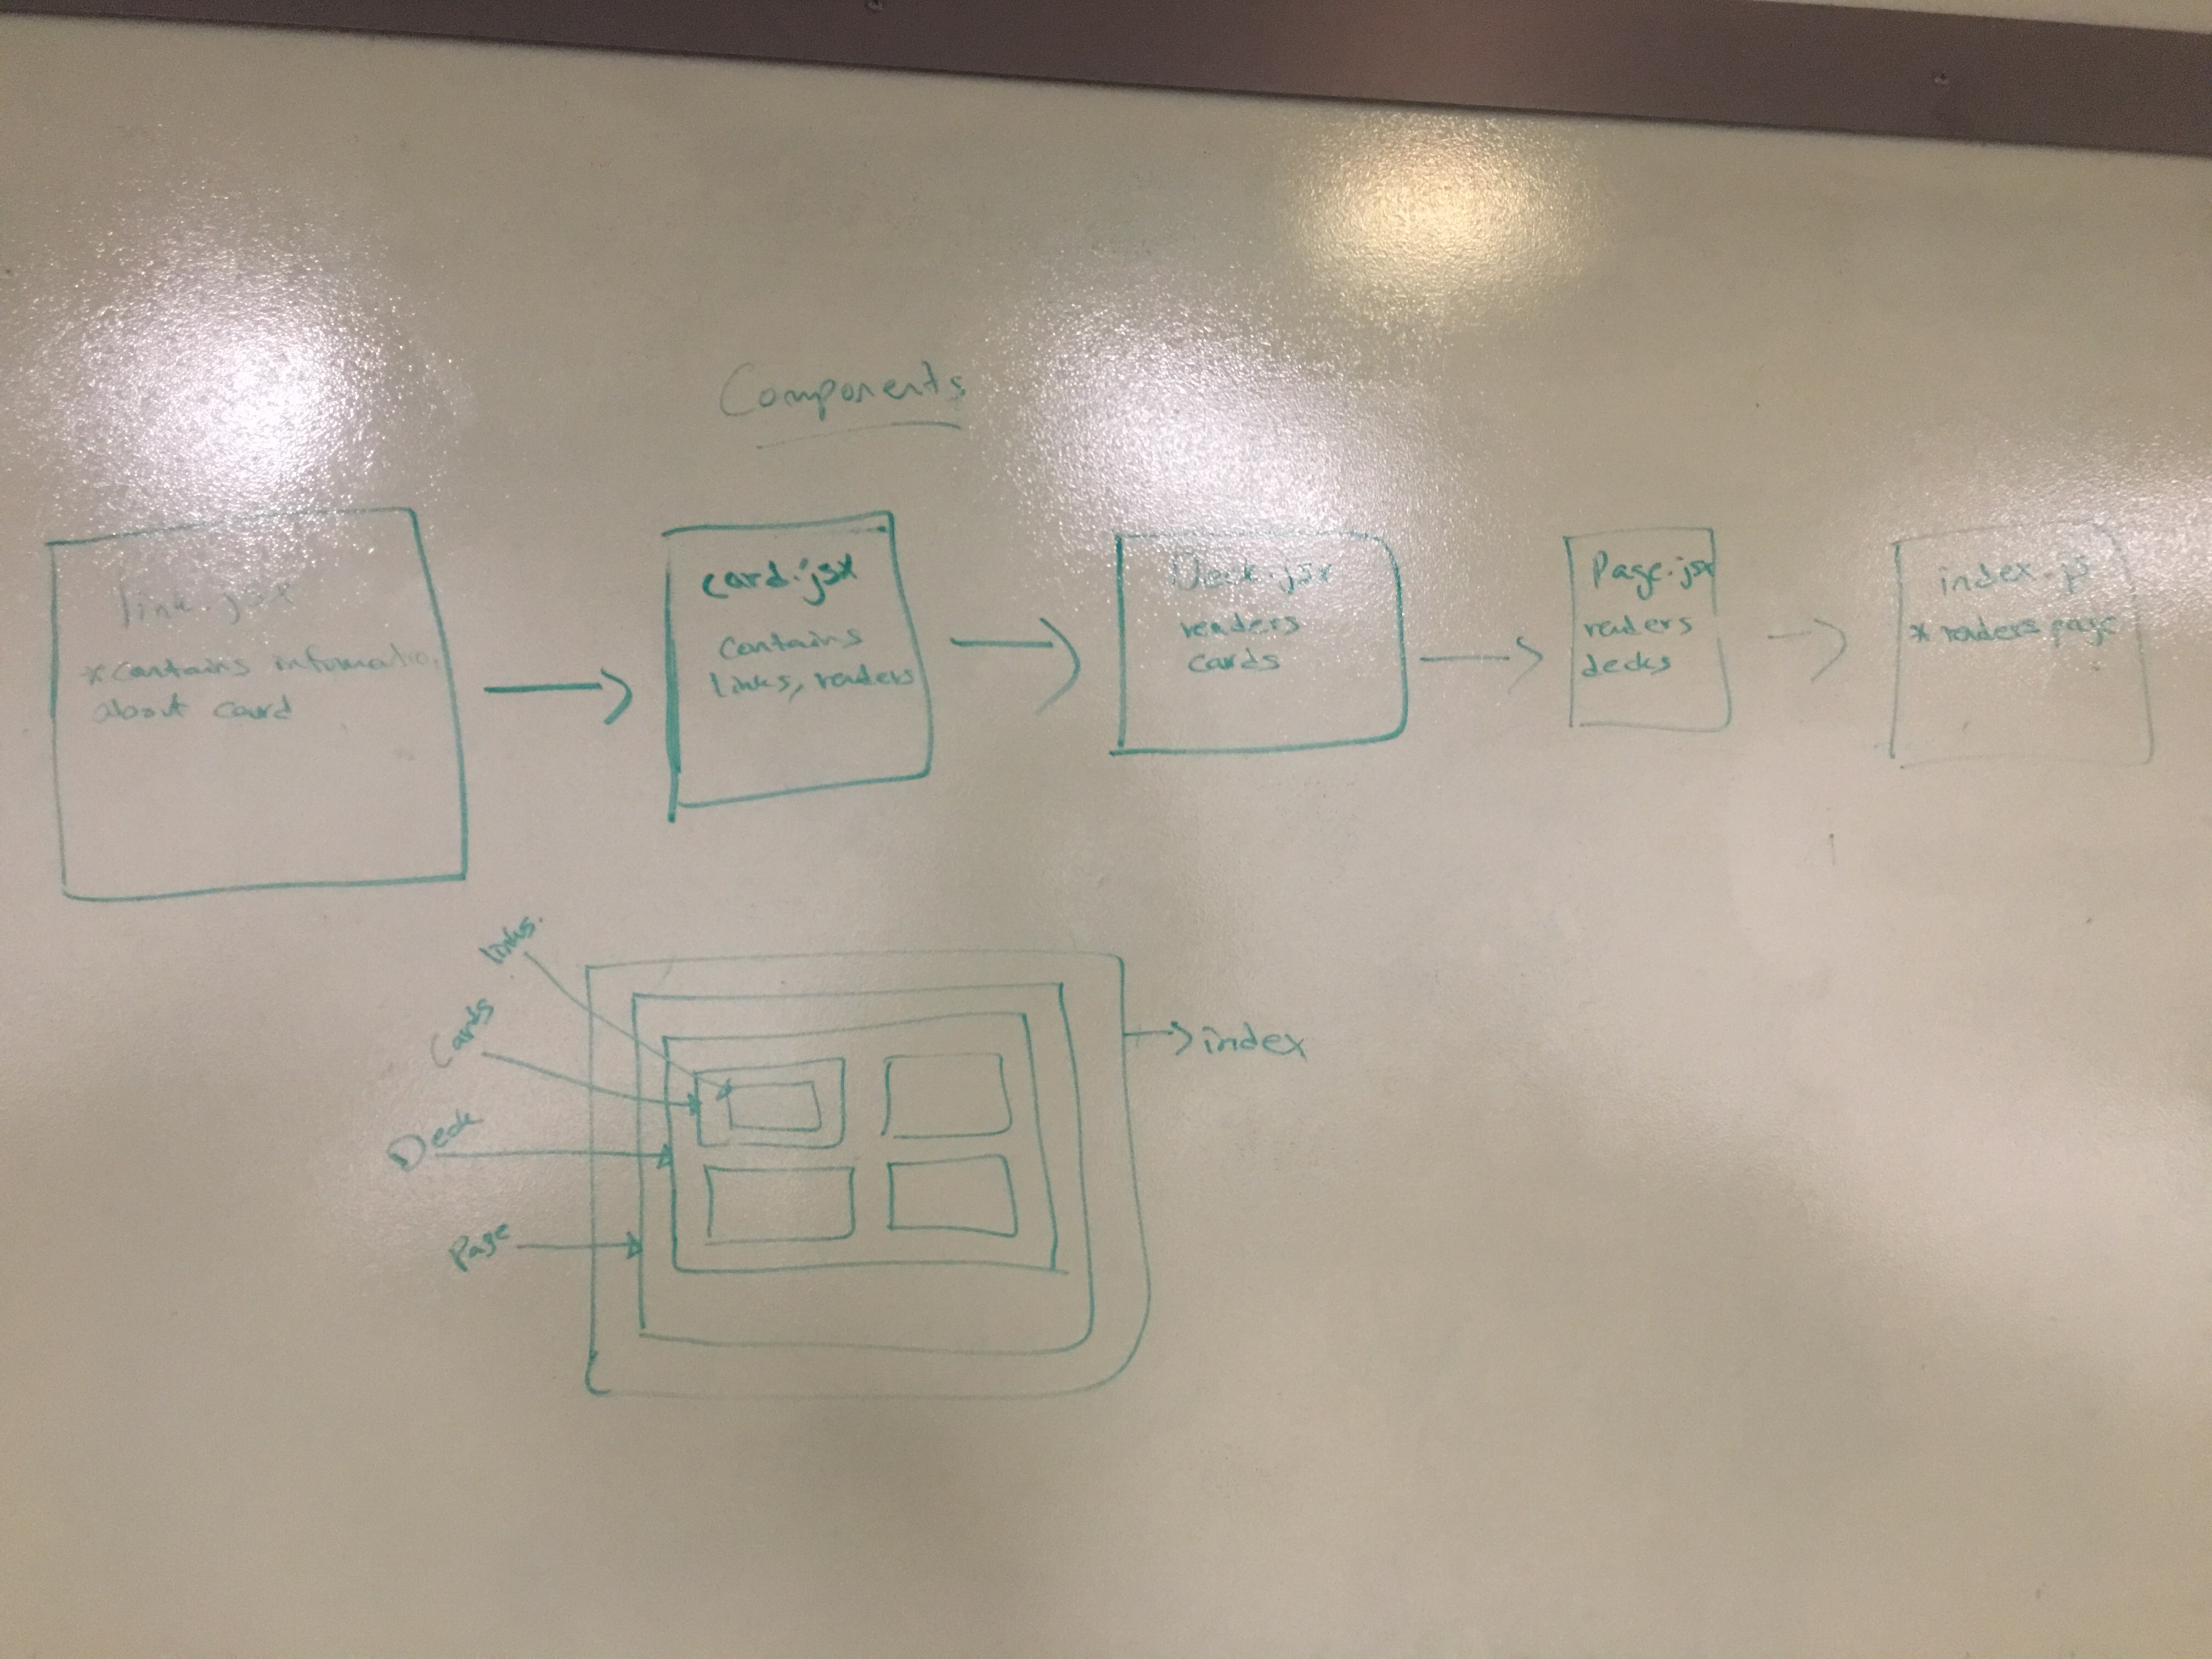 Components
link.jsx
* Contains informatio
about card
card.jsx
Contains
links, renders
Deck.jsx
renders
cards
Page.jsx
renders
decks
index.js
* renders page
links.
Cards
Deck
Page
index